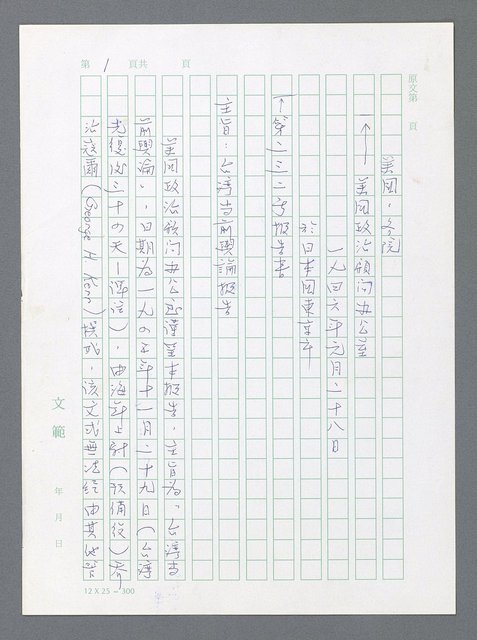 第 1 頁共 頁
原文第 頁
美國,務院
↑—美國政治顧問办公室
一九四六年元月二十八日
於日本國東京市
↑第二三二号报告書
主旨:台灣当前輿論报告
美国政治顾问办公室谨呈本报告,主旨为:台灣当
前輿論,日期为一九四五年十一月二十九日(台灣
光復後三十四天—譯註),由海軍上尉(预備役)乔
治 (George H Kerr)撰成,該文式無法經由其他管
文範
年 月 日
12 X 25 = 300